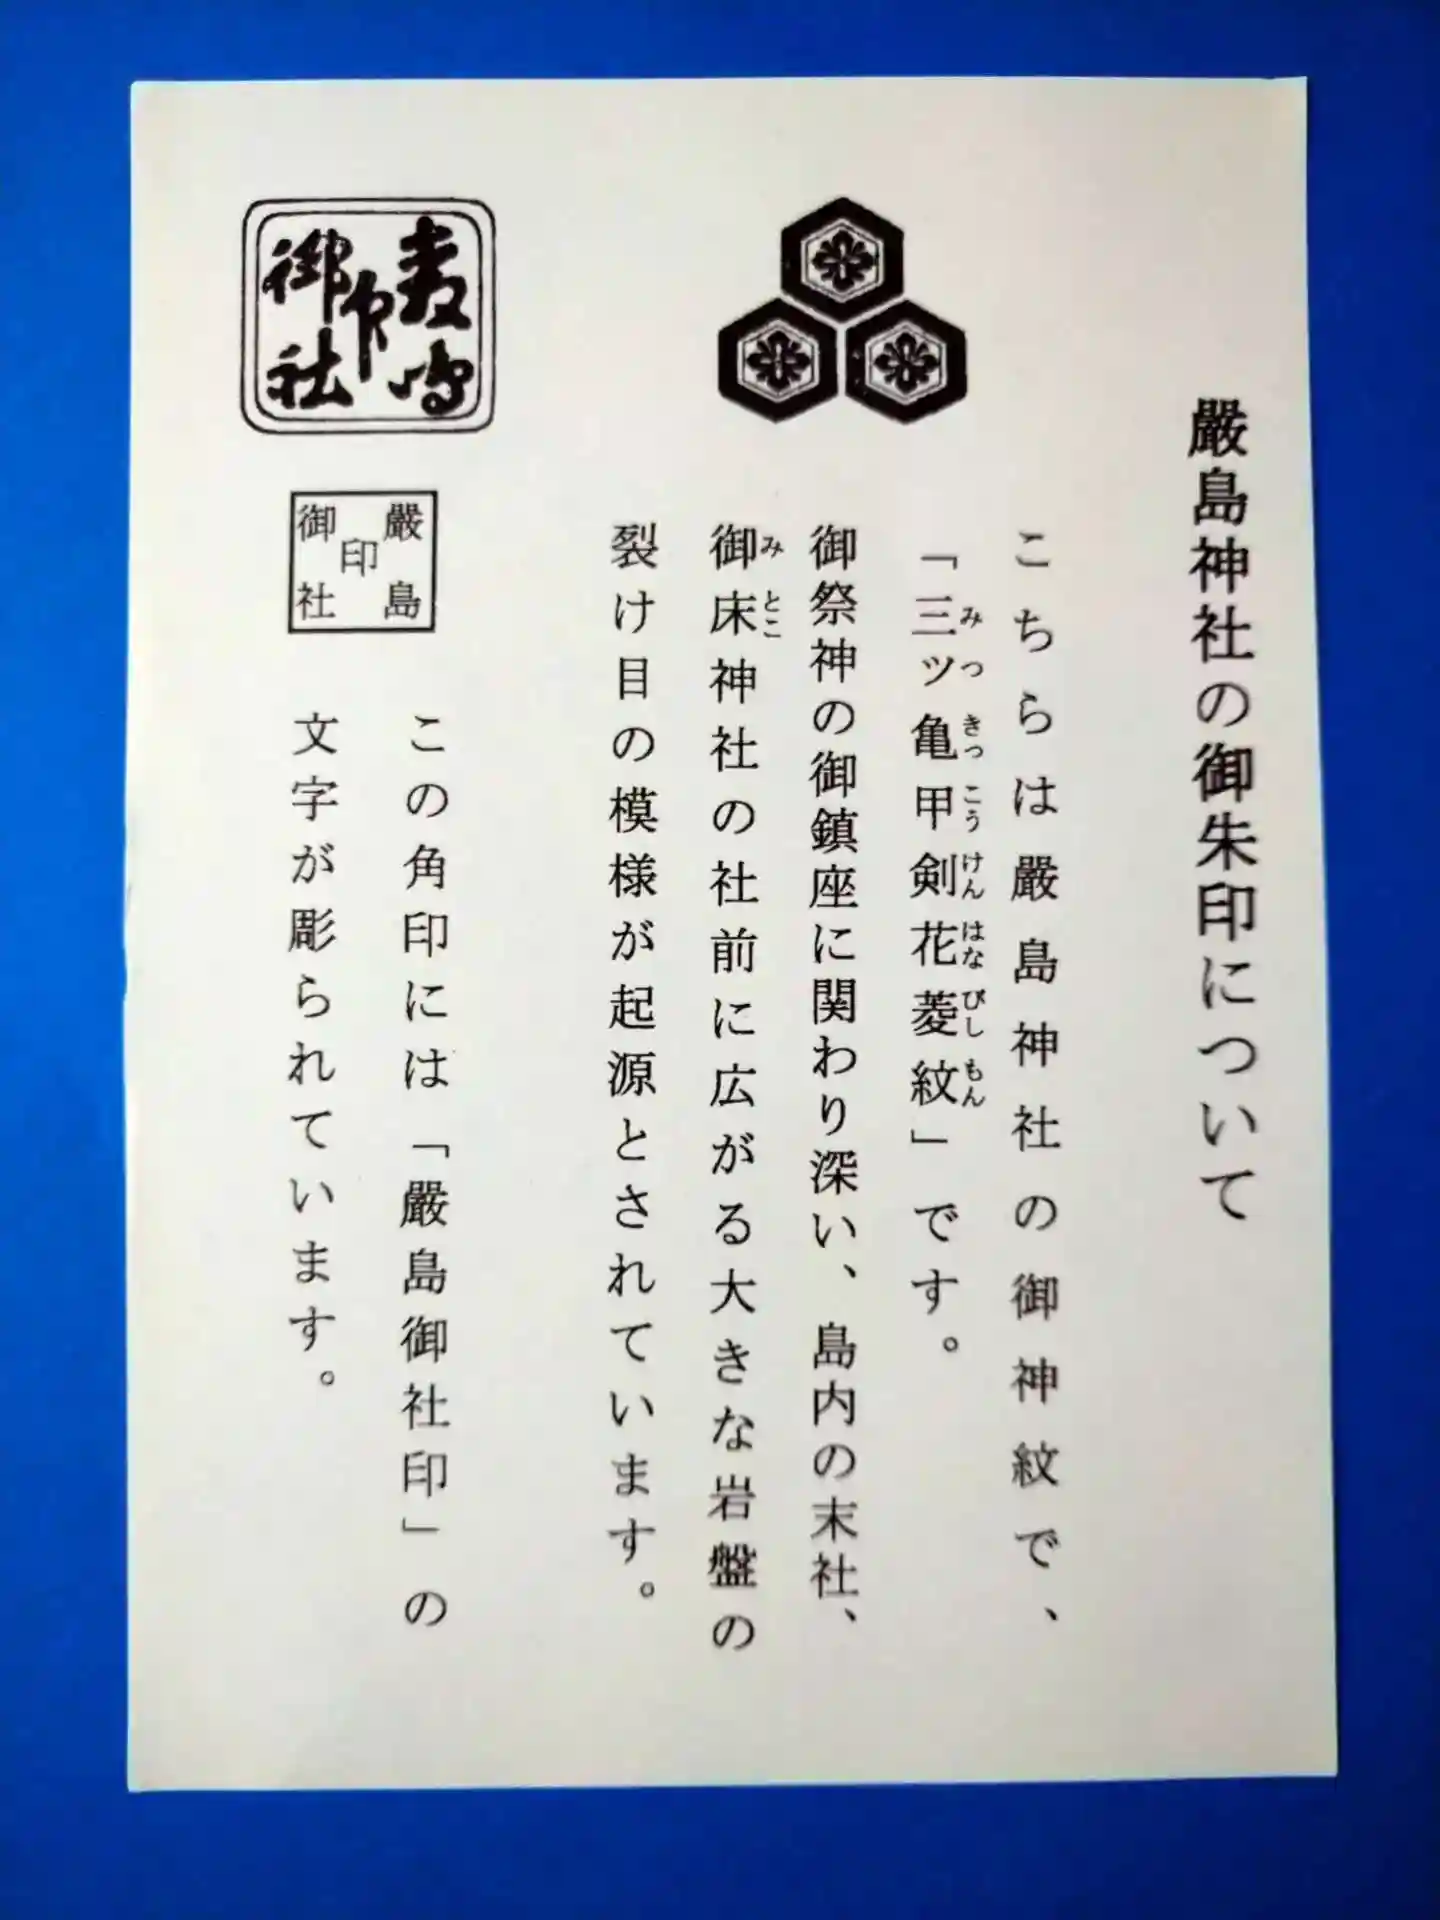 嚴島神社の御朱印について
こちらは嚴島神社の御神紋で、
「三ッ亀甲剣花菱紋」です。
みつきっこうけんはなびしもん
御祭神の御鎮座に関わり深い、島内の末社、
御床神社の社前に広がる大きな岩盤の
みとこ
裂け目の模様が起源とされています。
嚴島
印
御社
嚴島
印
御社
この角印には「嚴島御社印」の
文字が彫られています。